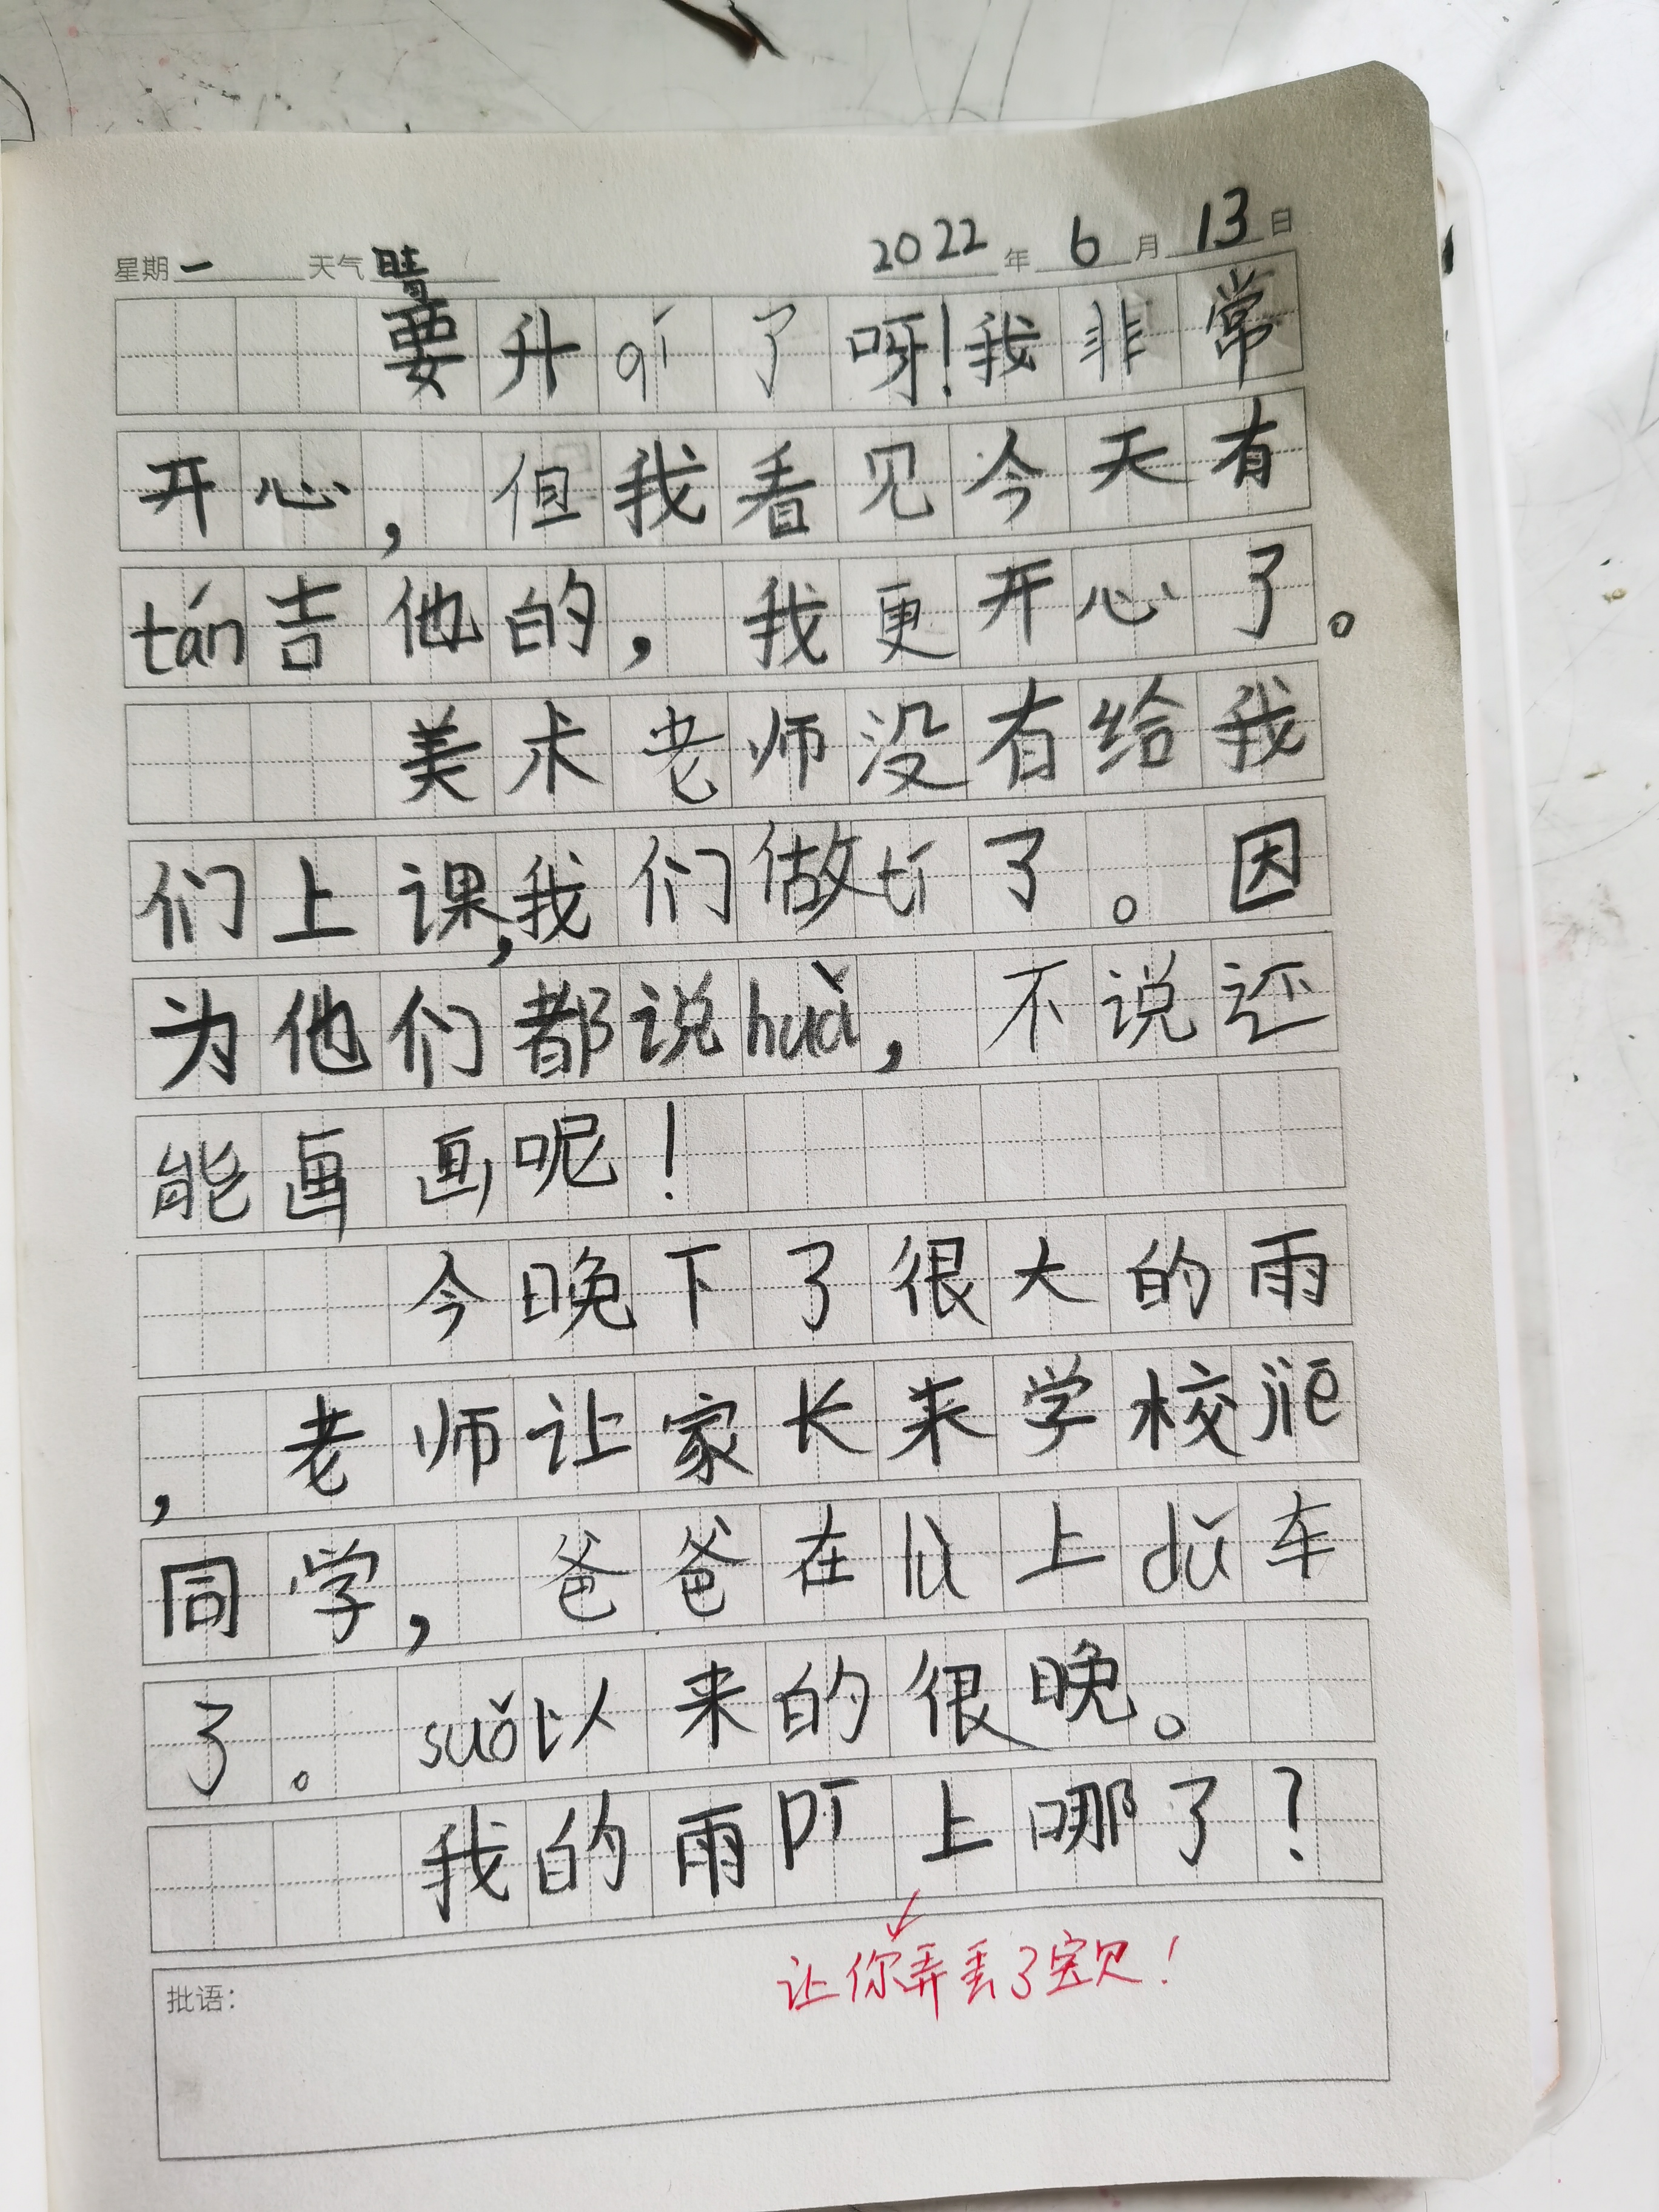 星期一 天气晴 2022年6月13日
要升qí了呀!我非常
开心,但我看见今天有
tán吉他的,我更开心了。
美术老师没有给我
们上课,我们做tí了。因
为他们都说huà,不说还
能画画呢!
今晚下了很大的雨
,老师让家长来学校jiē
同学,爸爸在lù上dǔ车
了。suǒ以来的很晚。
我的雨上哪了?
让你弄丢了宝贝!
批语: